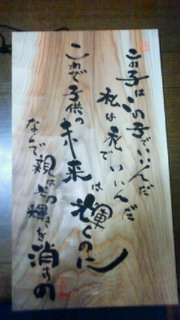 この子はこの子でいいんだ
私は私でいいんだ
これで子供の未来は輝くのに
なんで親はその輝きを消すの